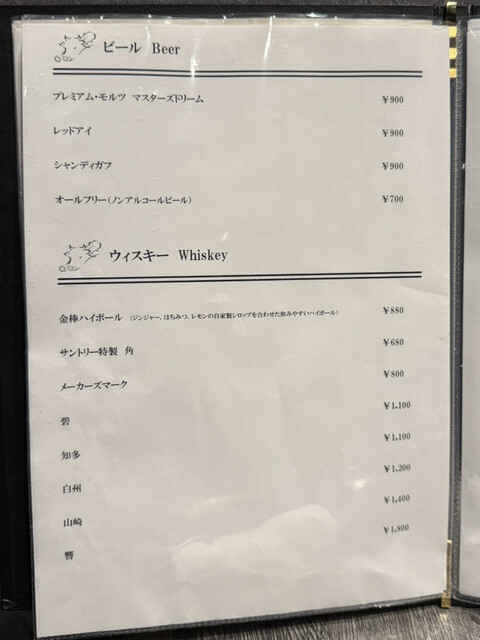 ビール Beer
プレミアム・モルツ マスターズドリーム ￥900
レッドアイ ￥900
シャンディガフ ￥900
オールフリー(ノンアルコールビール) ￥700
ウィスキー Whiskey
金棒ハイボール (ジンジャー、はちみつ、レモンの自家製シロップを合わせた飲みやすいハイボール) ￥880
サントリー特製 角 ￥680
メーカーズマーク ￥800
碧 ￥1,100
知多 ￥1,100
白州 ￥1,200
山崎 ￥1,400
響 ￥1,800